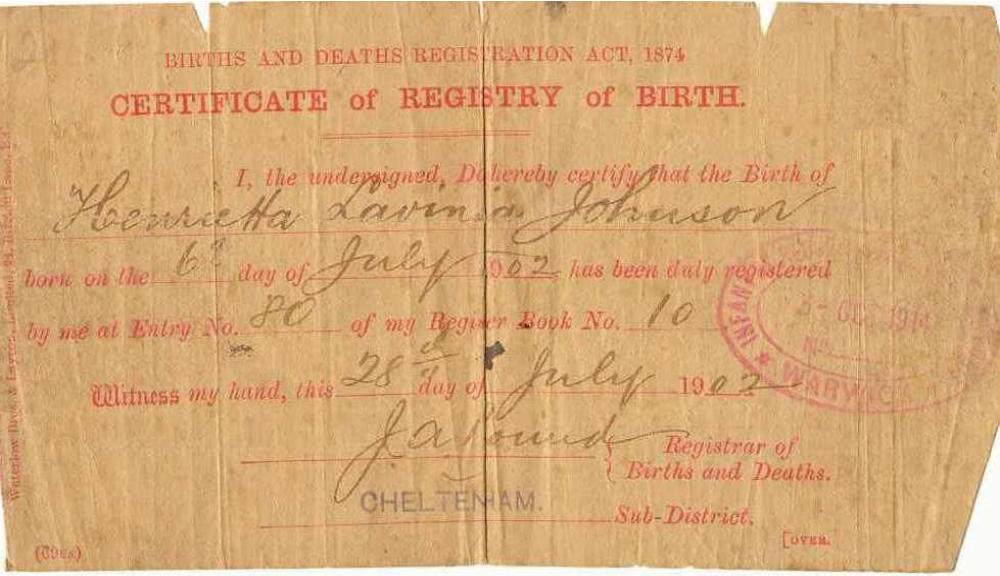 BIRTHS AND DEATHS REGISTRATION ACT, 1874
CERTIFICATE of REGISTRY of BIRTH.
I, the undersigned, Do hereby certify that the Birth of
Henrietta Lavinia Johnson
born on the 6th day of July 1902 has been duly registered
by me at Entry No. 80 of my Register Book No. 10
Witness my hand, this 28th day of July 1902
J. A. Registrar of
Births and Deaths.
CHELTENHAM.
Sub-District.
[OVER.
INFAN
1914
No.
WARWICK
Waterlow Bros. & Layton, Limited,